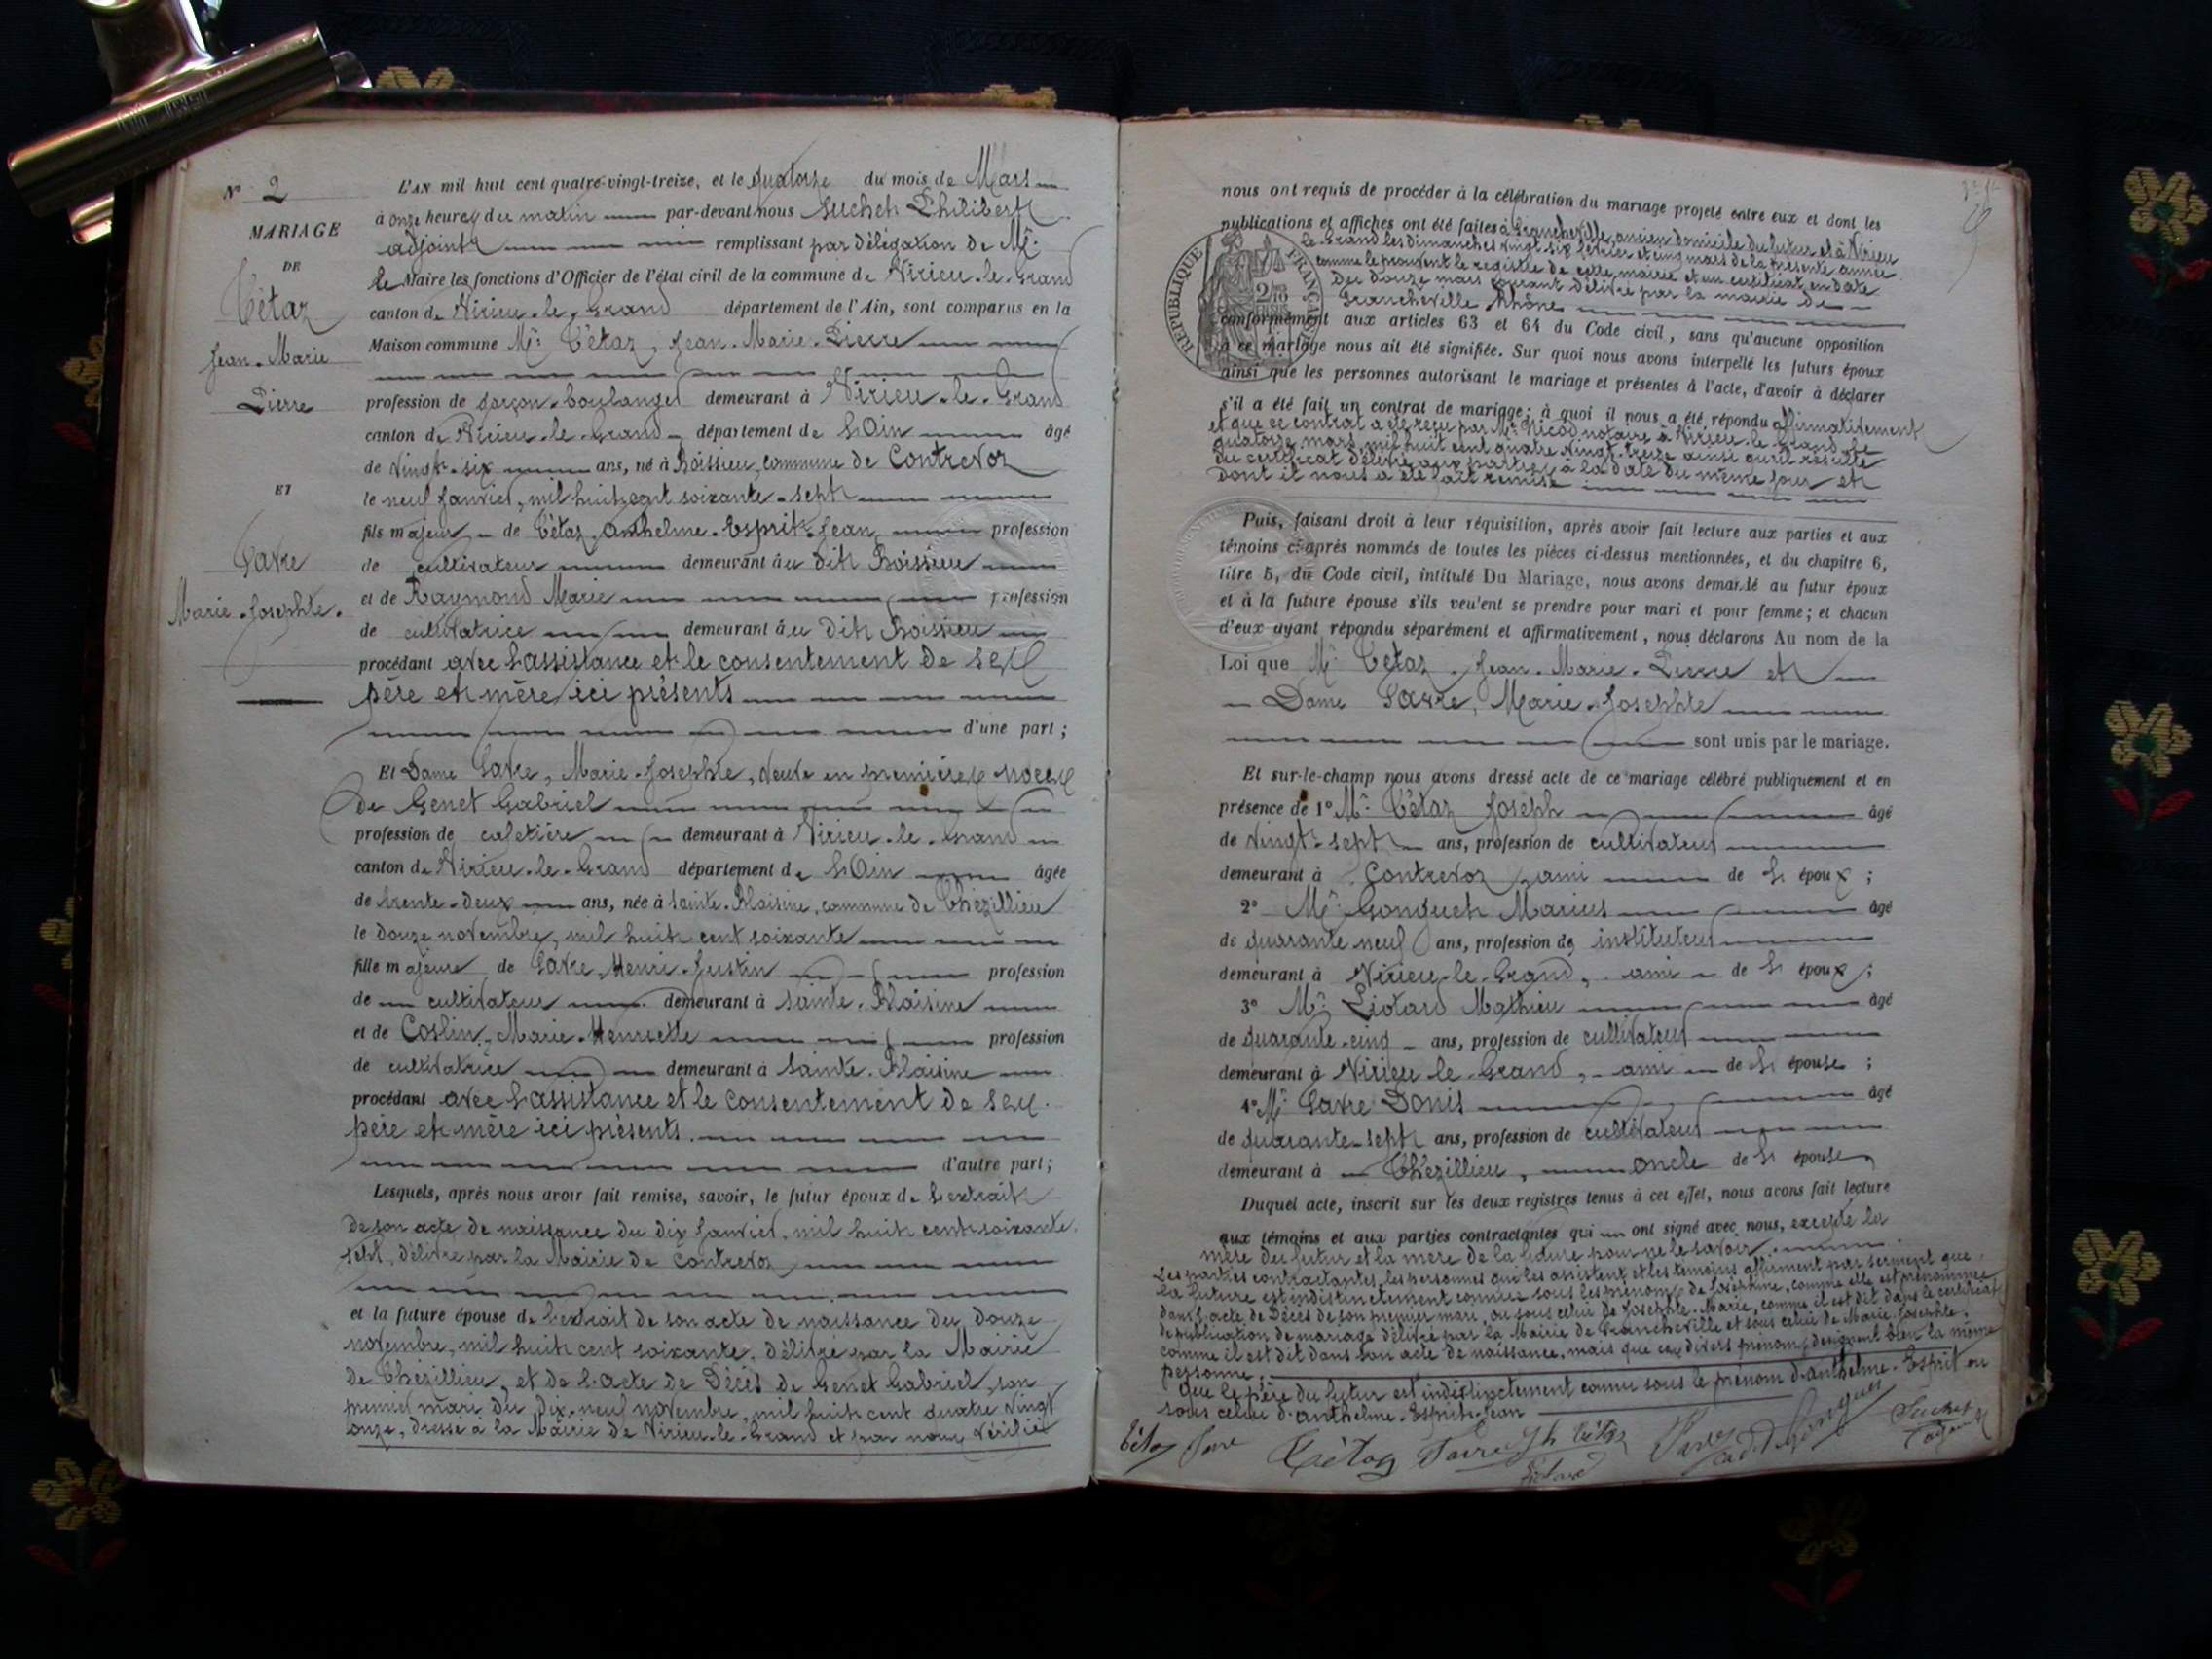 N° 2
MARIAGE
DE
Tétaz
Jean-Marie
Pierre
ET
Savre
Marie-Josephte.
L'AN mil huit cent quatre-vingt-treize, et le quatorze du mois de Mars
à onze heures du matin par-devant nous Suchet Philibert
adjoint remplissant par délégation de Mr
le Maire les fonctions d'Officier de l'état civil de la commune de Virieu-le-Grand
canton de Virieu-le-Grand département de l'Ain, sont comparus en la
Maison commune Mr Tétaz, Jean-Marie-Pierre
profession de garçon-boulanger demeurant à Virieu-le-Grand
canton de Virieu-le-Grand département de l'Ain âgé
de vingt-six ans, né à Boissieu, commune de Contrevoz
le neuf janvier, mil huit cent soixante-sept
fils majeur de Tétaz, Anthelme-Esprit-Jean profession
de cultivateur demeurant au dit Boissieu
et de Raymond Marie profession
de cultivatrice demeurant au dit Boissieu
procédant avec l'assistance et le consentement de ses
père et mère ici présents
d'une part;
Et Dame Savre, Marie-Josephte, veuve en premières noces
de Genet Gabriel
profession de cafetière demeurant à Virieu-le-Grand
canton de Virieu-le-Grand département de l'Ain âgée
de trente-deux ans, née à Sainte-Blaisine, commune de Thézillieu
le douze novembre, mil huit cent soixante
fille majeure de Savre, Henri-Justin profession
de cultivateur demeurant à Sainte-Blaisine
et de Coslin, Marie-Henriette profession
de cultivatrice demeurant à Sainte-Blaisine
procédant avec l'assistance et le consentement de ses
père et mère ici présents.
d'autre part;
Lesquels, après nous avoir fait remise, savoir, le futur époux de l'extrait
de son acte de naissance du dix janvier, mil huit cent soixante
sept, délivré par la Mairie de Contrevoz
et la future épouse de l'extrait de son acte de naissance du douze
novembre, mil huit cent soixante, délivré par la Mairie
de Thézillieu, et de l'acte de décès de Genet Gabriel, son
premier mari du dix-neuf novembre, mil huit cent quatre vingt
onze, dressé à la Mairie de Virieu-le-Grand et par nous vérifié
nous ont requis de procéder à la célébration du mariage projeté entre eux et dont les
publications et affiches ont été faites à Francheville, ancien domicile du futur et à Virieu
le Grand les dimanches vingt-six février et cinq mars de la présente année
comme le prouvent le registre de cette mairie et un certificat en date
du douze mars courant délivré par la mairie de
Francheville Rhône
RÉPUBLIQUE FRANÇAISE
conformément aux articles 63 et 64 du Code civil, sans qu'aucune opposition
à ce mariage nous ait été signifiée. Sur quoi nous avons interpellé les futurs époux
ainsi que les personnes autorisant le mariage et présentes à l'acte, d'avoir à déclarer
s'il a été fait un contrat de mariage; à quoi il nous a été répondu affirmativement
et que ce contrat a été reçu par Mr Nicod notaire à Virieu-le-Grand, le
quatorze mars, mil huit cent quatre vingt-treize ainsi qu'il résulte
du certificat délivré aux parties, à la date du même jour et
dont il nous a été fait remise
Puis, faisant droit à leur réquisition, après avoir fait lecture aux parties et aux
témoins ci-après nommés de toutes les pièces ci-dessus mentionnées, et du chapitre 6,
titre 5, du Code civil, intitulé Du Mariage, nous avons demandé au futur époux
et à la future épouse s'ils veulent se prendre pour mari et pour femme; et chacun
d'eux ayant répondu séparément et affirmativement, nous déclarons Au nom de la
Loi que Mr Tétaz, Jean-Marie-Pierre et
Dame Savre, Marie-Josephte
sont unis par le mariage.
Et sur-le-champ nous avons dressé acte de ce mariage célébré publiquement et en
présence de 1° Mr Tétaz Joseph âgé
de vingt-sept ans, profession de cultivateur
demeurant à Contrevoz, ami de l'époux;
2° Mr Gonguet Marius âgé
de quarante neuf ans, profession de instituteur
demeurant à Virieu-le-Grand, ami de l'époux;
3° Mr Liotard Mathieu âgé
de quarante-cinq ans, profession de cultivateur
demeurant à Virieu-le-Grand, ami de l'épouse;
4° Mr Savre Donis âgé
de quarante-sept ans, profession de cultivateur
demeurant à Thézillieu, oncle de l'épouse
Duquel acte, inscrit sur les deux registres tenus à cet effet, nous avons fait lecture
aux témoins et aux parties contractantes qui ont signé avec nous, excepté la
mère du futur et la mère de la future pour ne le savoir.
Les parties contractantes, les personnes qui les assistent, et les témoins affirment par serment que
la future est indistinctement connue sous les prénoms de Joséphine, comme elle est prénommée
dans l'acte de décès de son premier mari, ou sous celui de Josephte-Marie, comme il est dit dans le certificat
de publication de mariage délivré par la Mairie de Francheville et sous celui de Marie-Josephte,
comme il est dit dans son acte de naissance, mais que ces divers prénoms désignent bien la même
personne;
que le père du futur est indistinctement connu sous le prénom d'Anthelme-Esprit ou
sous celui d'Anthelme-Esprit-Jean
Tétaz Savre Tétaz Savre Jh Tétaz Liotard Savre Suchet